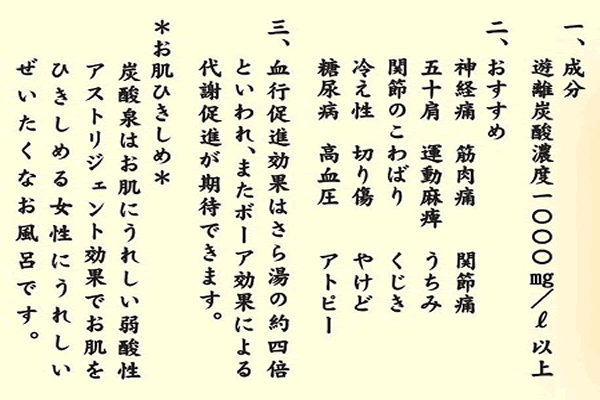 一、成分
遊離炭酸濃度一〇〇〇mg/ℓ以上
二、おすすめ
神経痛 筋肉痛 関節痛
五十肩 運動麻痺 うちみ
関節のこわばり くじき
冷え性 切り傷 やけど
糖尿病 高血圧 アトピー
三、血行促進効果はさら湯の約四倍
といわれ、またボーア効果による
代謝促進が期待できます。
＊お肌ひきしめ＊
炭酸泉はお肌にうれしい弱酸性
アストリジェント効果でお肌を
ひきしめる女性にうれしい
ぜいたくなお風呂です。